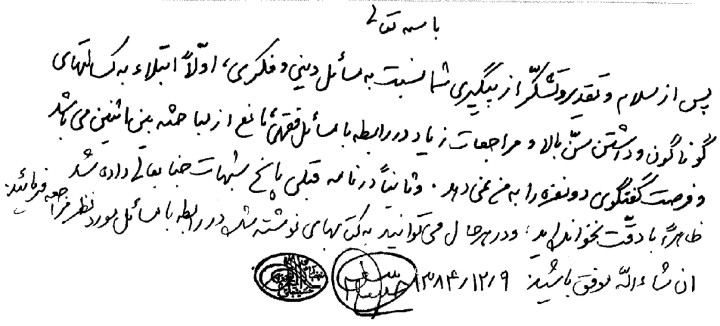 باسمه تعالی
پس از سلام و تقدیر و تشکّر از پیگیری شما نسبت به مسائل دینی و فکری، اولاً ابتلاء به کسالتهای
گوناگون و داشتن سنّ بالا و مراجعات زیاد در رابطه با مسائل فقهی، مانع از مباحثه بین اثنین می باشد
و فرصت گفتگوی دو نفره را به من نمی دهد. و ثانیاً در نامه قبلی پاسخ شبهات جنابعالی داده شد
ظاهراً با دقّت نخوانده اید، و در هر حال می توانید به کتابهای نوشته شده در رابطه با مسائل مورد نظر مراجعه فرمائید.
ان شاء الله موفق باشید ۱۳۸۴/۱۲/۹